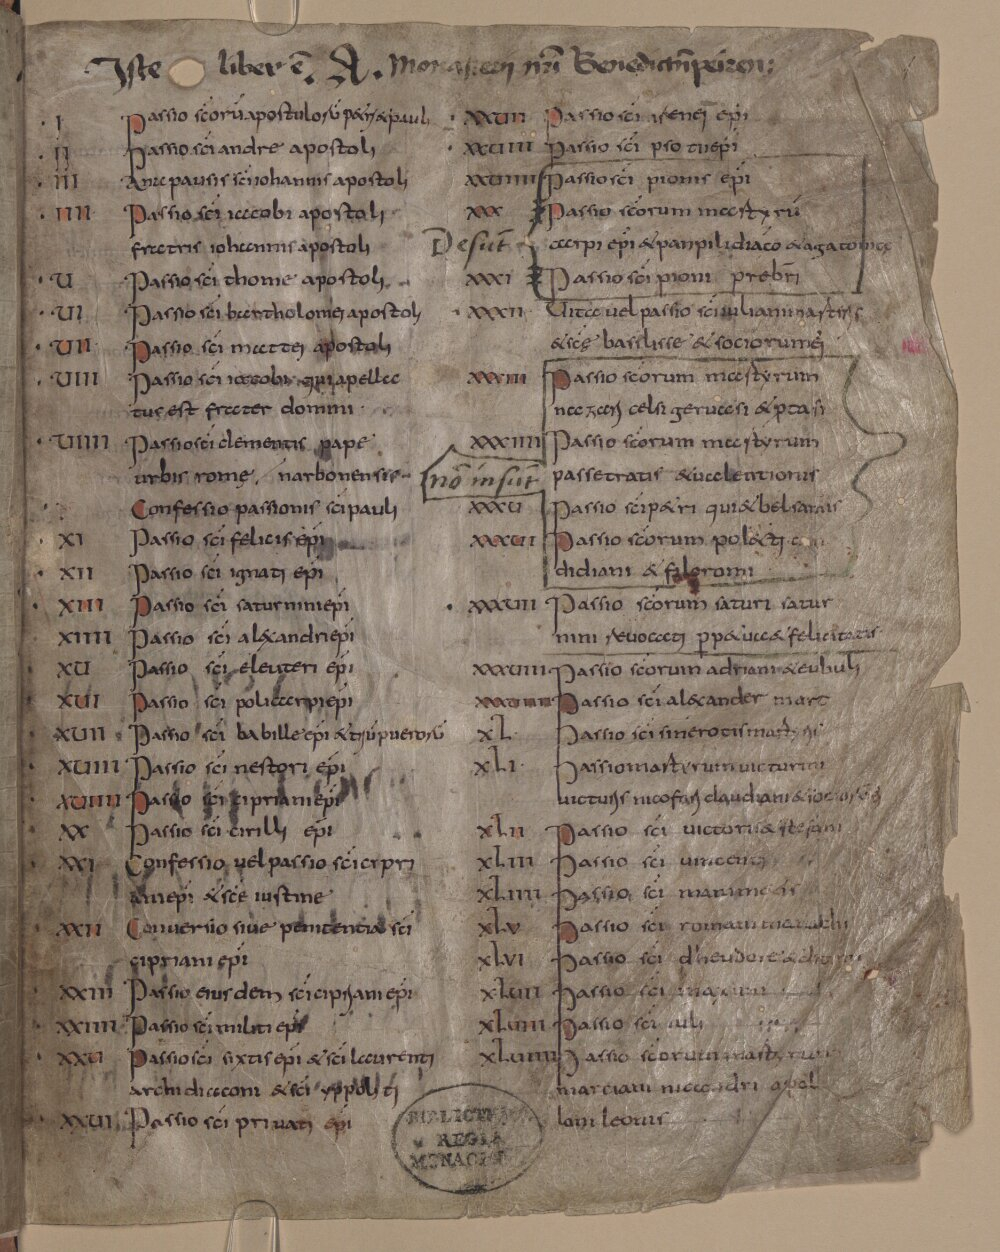 Iste liber ē A. Monasterij nrī Benedictinpeüren:
· I Passio scōrū apostulorū petri & pauli
· II Passio sci andre apostoli
· III Ante pausis sci iohannis apostoli
· IIII Passio sci iacobi apostoli
fratris iohannis apostoli
· U Passio sci thome apostoli
· UI Passio sci bartholomei apostoli
· UII Passio sci mattei apostoli
· UIII Passio sci iacobi qui apella
tus est frater domini
· UIIII Passio sci clementis pape
urbis rome, narbonensis
Confessio passionis sci pauli
· XI Passio sci felicis epi
· XII Passio sci ignati epi
· XIII Passio sci saturnini epi
XIIII Passio sci alexandri epi
XU Passio sci eleuteri epi
XUI Passio sci policarpi epi
· XUII Passio sci babille epi & triū puerorū
· XUIII Passio sci nestori epi
· XUIIII Passio sci cipriani epi
XX Passio sci cirilli epi
XXI Confessio vel passio sci cipri
ani epi & sce iustine
XXII Conversio sive penitentia sci
cipriani epi
XXIII Passio eiusdem sci cipriani epi
XXIIII Passio sci militi epi
XXU Passio sci sixtis epi & sci laurenti
archidiaconi & sci yppoliti
XXUI Passio sci privati epi
· XXUII Passio sci irenei epi
· XXUIII Passio sci epi
XXUIIII Passio sci pionis epi
XXX Passio scorum martyrū
carpi epi & panpili diaco & agatonice
Desūt
XXXI Passio sci pioni prebri
· XXXII Uita vel passio sci iuliani martiris
& sce basilisse & sociorum ei
XXXIII Passio scorum martyrum
nazari celsi gervasi & ptasi
XXXIIII Passio scorum martyrum
nō insūt
passetratis & valentionis
XXXU Passio sci petri qui & belsamis
XXXUI Passio scorum polecti
didiani & filoromi
· XXXUII Passio scorum saturi satur
nini revocati perpetua & felicitatis
XXXUIII Passio scorum adriani & eubuli
XXXUIIII Passio sci alexander mart
XL Passio sci sinerotis martyris
XLI Passio martyrum victurini
victuris nicofori claudiani
XLII Passio sci victoris & stefani
XLIII Passio sci vincenti
XLIIII Passio sci
XLV Passio sci romani monachi
XLVI Passio sci
XLUII Passio sci
XLUIII Passio sci
XLUIIII Passio scorum martyrum
marciani nicandri apol
loni leonis
BIBLIOTHECA
REGIA
MONACENSIS